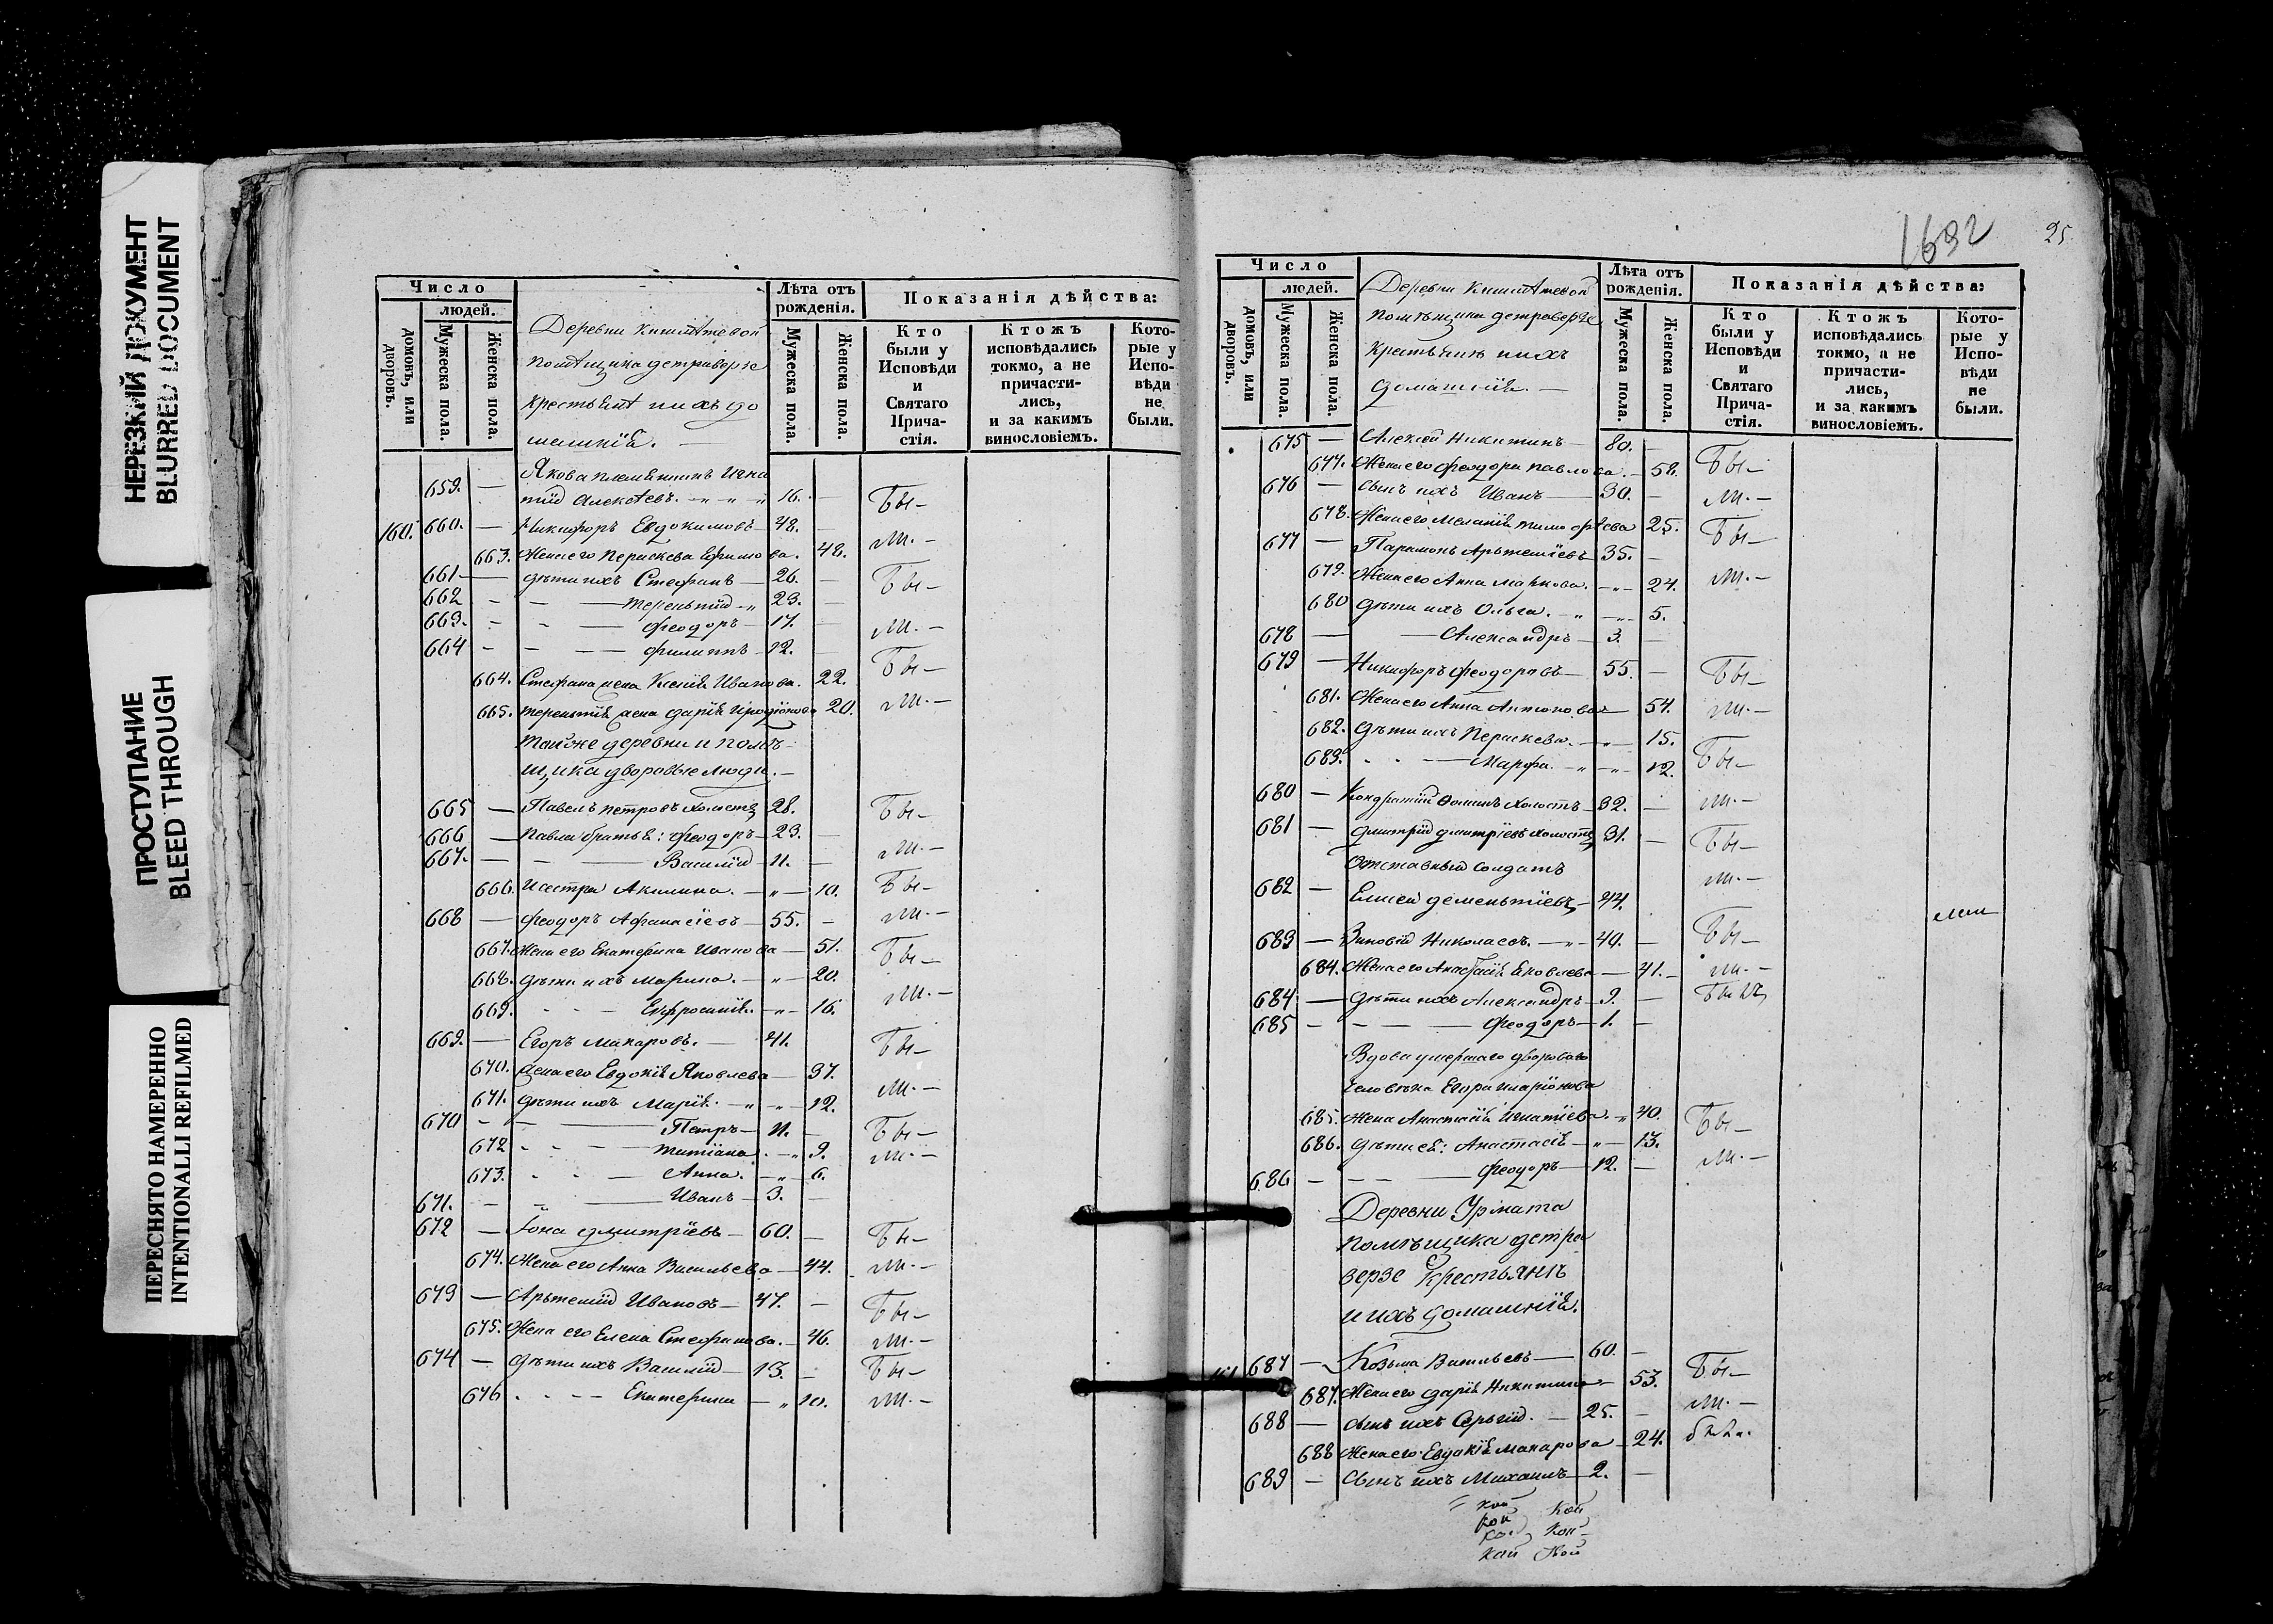 НЕРЕЗКИЙ ДОКУМЕНТ
BLURRED DOCUMENT
ПРОСТУПАНИЕ
BLEED THROUGH
ПЕРЕСНЯТО НАМЕРЕННО
INTENTIONALLI REFILMED
Число
людей.
домовъ, или дворовъ.
Мужеска пола.
Женска пола.
Лѣта отъ рожденія.
Мужеска пола.
Женска пола.
Показанія дѣйства:
Кто были у Исповѣди и Святаго Прича-стія.
Ктожъ исповѣдались токмо, а не причасти-лись, и за какимъ винословіемъ.
Кото-рые у Испо-вѣди не были.
Деревни
помѣщика детраверзе
крестьянѣ и ихъ до
машнія. —
Якова племянникъ Игна
659. — тій Алексѣевъ. 16. — Бы —
160. 660. — Никифоръ Евдокимовъ 48. — ли. —
663. Жена его Параскева Ефимова. 48.
661 — дѣти ихъ Стефанъ — 26. — Бы —
662 — Терентій 23. —
663. — Феодоръ — 17. — ли. —
664 — Филиппъ — 12. — Бы —
664. Стефана жена Ксенія Иванова. 22.
665. Терентія жена Дарія Иродіонова 20. ли. —
Тойже деревни и помѣ-
щика дворовые люди. —
665 — Павелъ Петровъ холостъ 28. Бы —
666 — Павла братья: Феодоръ — 23. —
667. — Василій — 11. — ли. —
666. И сестра Акилина. — 10. Бы —
668 — Феодоръ Афанасіевъ — 55. — ли. —
667. Жена его Екатерина Иванова — 51. Бы —
668. дѣти ихъ Марина. — 20. ли. —
669. Евфросинія. — 16.
669. — Егоръ Макаровъ. — 41. Бы —
670. Жена его Евдокія Яковлева — 37. ли. —
671. дѣти ихъ Марія. — 12.
670 — Петръ — 11. — Бы —
672 Татіана. — 9. ли. —
673. Анна. — 6.
671. — Иванъ — 3. —
672 — Іона Дмитріевъ — 60. — Бы —
674. Жена его Анна Васильева — 44. ли. —
673 — Артемій Ивановъ — 47. — Бы —
675. Жена его Елена Стефанова. — 46. ли. —
674 — дѣти ихъ Василій — 13. — Бы —
676 Екатерина — 10. ли. —
1632
25
Число
людей.
домовъ, или дворовъ.
Мужеска пола.
Женска пола.
Лѣта отъ рожденія.
Мужеска пола.
Женска пола.
Показанія дѣйства:
Кто были у Исповѣди и Святаго Прича-стія.
Ктожъ исповѣдались токмо, а не причасти-лись, и за какимъ винословіемъ.
Кото-рые у Испо-вѣди не были.
Деревни
помѣщика детраверзе
крестьянѣ и ихъ
домашнія. —
675 — Алексѣй Никитинъ — 80. —
677. Жена его Феодора Павлова. — 58. Бы —
676 — сынъ ихъ Иванъ — 30. — ли. —
678. Жена его Меланія Тимофѣева 25. Бы —
677 — Парамонъ Артеміевъ — 35. —
679. Жена его Анна Маркова. — 24. ли. —
680 дѣти ихъ Ольга. — 5.
678 — Александръ — 3. —
679 — Никифоръ Феодоровъ — 55. — Бы —
681. Жена его Анна Антонова — 54. ли. —
682. дѣти ихъ Параскева. — 15. Бы —
683. Марфа. — 12.
680 — Кондратій Ѳоминъ холостъ — 32. — ли. —
681 — Дмитрій Дмитріевъ холостъ 31. — Бы —
Отставный солдатъ
682 — Елисей Дементіевъ — 44. ли. —
683 — Зиновій Николаевъ. — 40. — Бы —
684. Жена его Анастасія Яковлева — 41. — ли. —
684 — дѣти ихъ Александръ — 9. — Былъ
685 — Феодоръ — 1. —
Вдова умершаго двороваго
человѣка Егора Иларіонова
685. жена Анастасія Игнатіева. 40. Бы —
686. дѣти ея: Анастасія — 13.
686 — Феодоръ — 12. — ли. —
Деревни Урмата
помѣщика детра
верзе крестьянъ
и ихъ домашнія.
687 — Козьма Васильевъ — 60. —
687. Жена его Дарія Никитина — 53. Бы —
688 — сынъ ихъ Сергій. — 25. — ли. —
688 Жена его Евдокія Макарова — 24.
689 — сынъ ихъ Михаилъ — 2. —